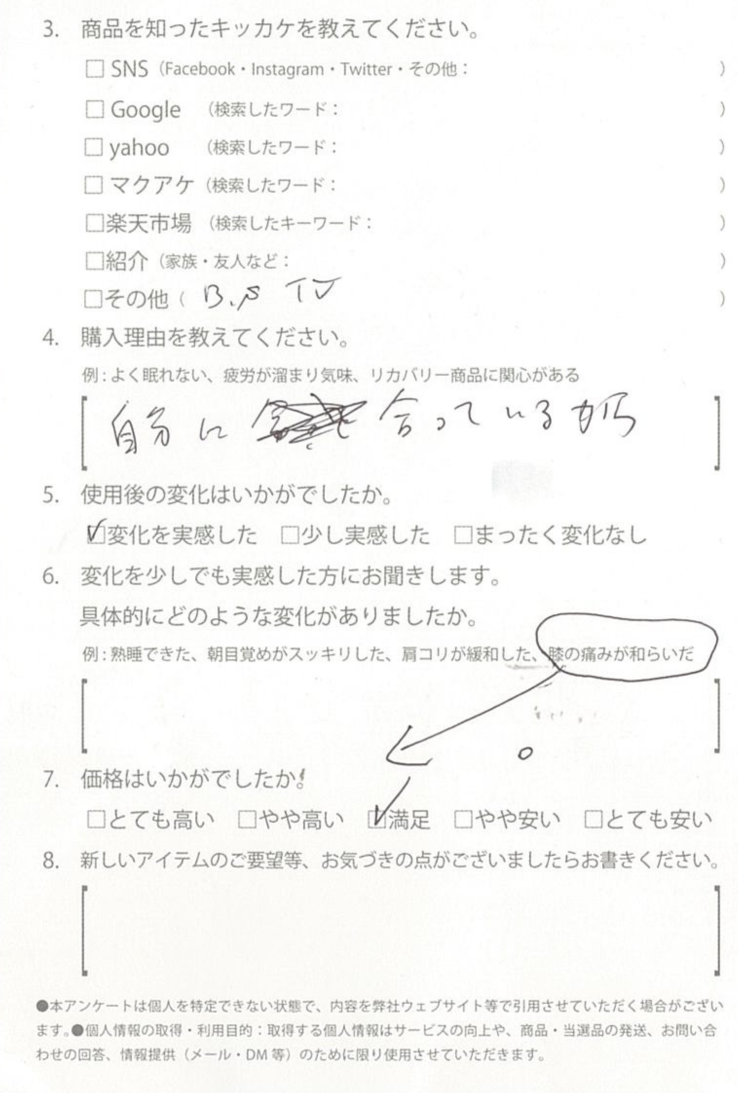 3. 商品を知ったキッカケを教えてください。
□ SNS（Facebook・Instagram・Twitter・その他： ）
□ Google （検索したワード： ）
□ yahoo （検索したワード： ）
□ マクアケ（検索したワード： ）
□楽天市場 （検索したキーワード： ）
□紹介（家族・友人など： ）
□その他（ B.S TV ）
4. 購入理由を教えてください。
例：よく眠れない、疲労が溜まり気味、リカバリー商品に関心がある
自分に 合っているから
5. 使用後の変化はいかがでしたか。
☑変化を実感した □少し実感した □まったく変化なし
6. 変化を少しでも実感した方にお聞きします。
具体的にどのような変化がありましたか。
例：熟睡できた、朝目覚めがスッキリした、肩コリが緩和した、膝の痛みが和らいだ
7. 価格はいかがでしたか。
□とても高い □やや高い ☑満足 □やや安い □とても安い
8. 新しいアイテムのご要望等、お気づきの点がございましたらお書きください。
●本アンケートは個人を特定できない状態で、内容を弊社ウェブサイト等で引用させていただく場合がござい
ます。●個人情報の取得・利用目的：取得する個人情報はサービスの向上や、商品・当選品の発送、お問い合
わせの回答、情報提供（メール・DM 等）のために限り使用させていただきます。